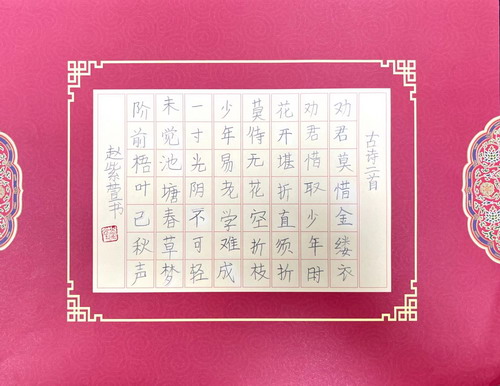 古诗二首
劝君莫惜金缕衣
劝君惜取少年时
花开堪折直须折
莫待无花空折枝
少年易老学难成
一寸光阴不可轻
未觉池塘春草梦
阶前梧叶已秋声
赵紫萱书